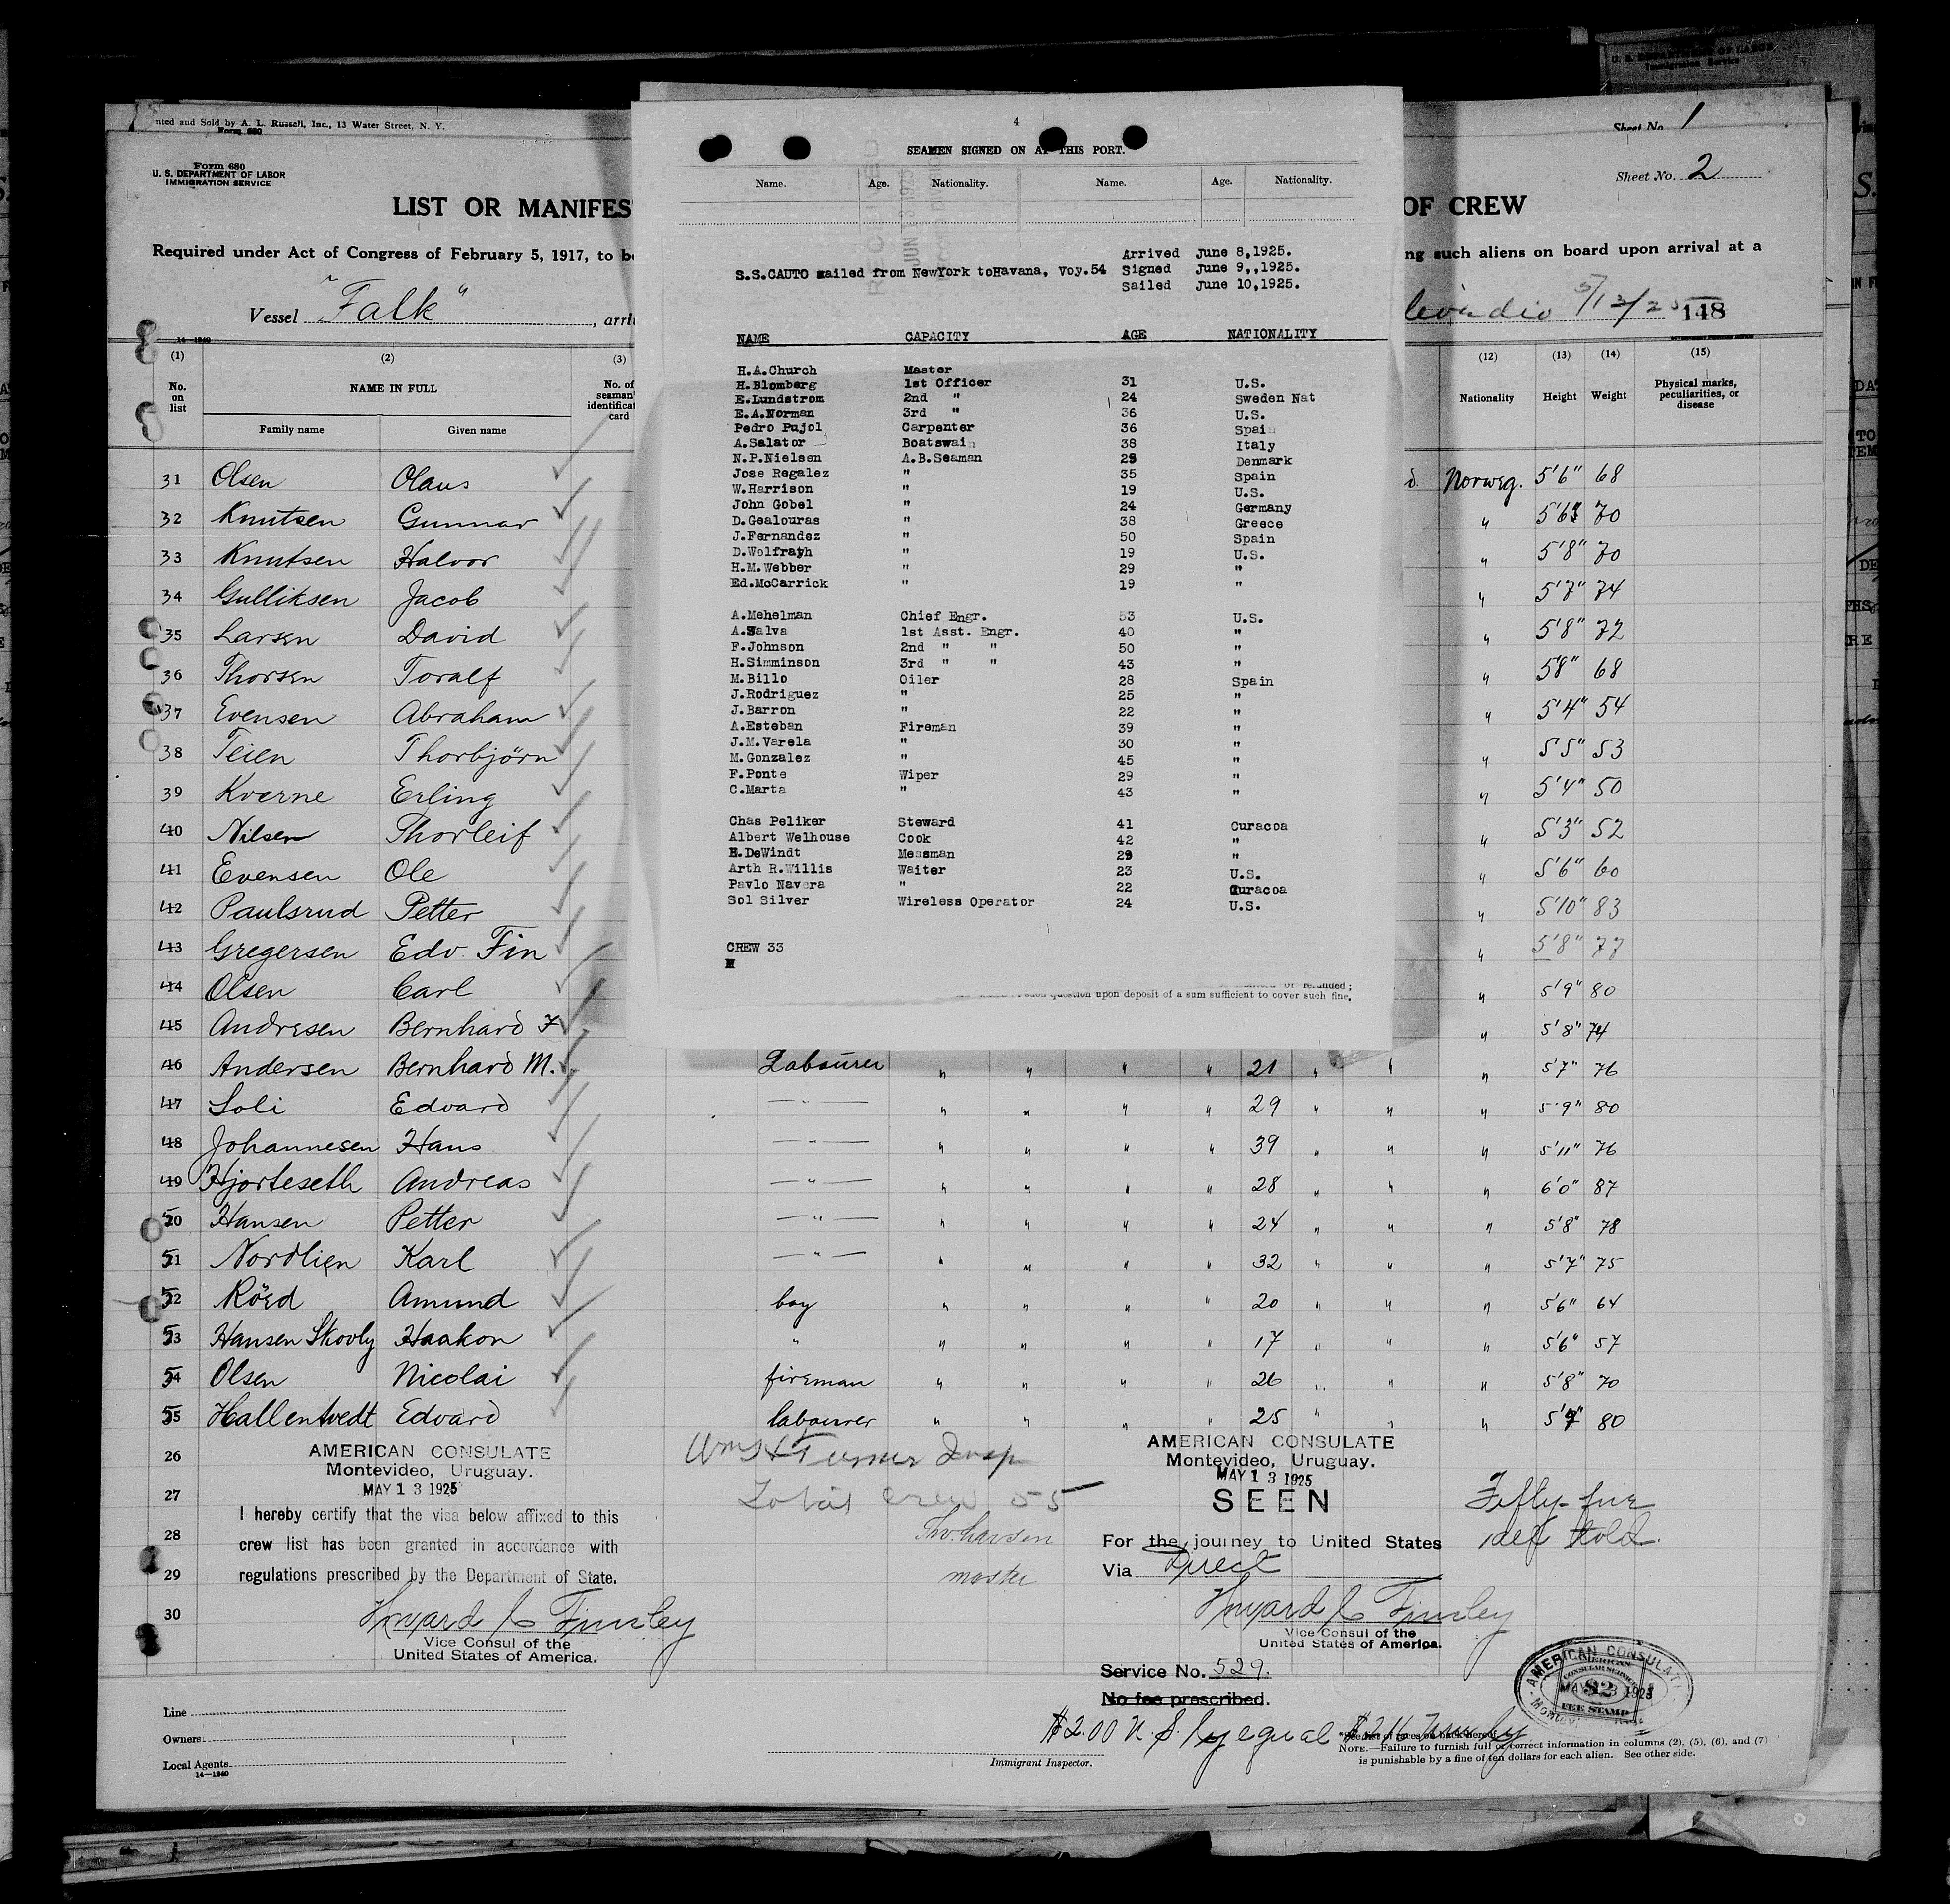 U. S. DEPARTMENT OF LABOR
Immigration Service
nted and Sold by A. L. Russell, Inc., 13 Water Street, N. Y.
Form 680
Sheet No. 1
Form 680
U. S. DEPARTMENT OF LABOR
IMMIGRATION SERVICE
Sheet No. 2
LIST OR MANIFES
OF CREW
Required under Act of Congress of February 5, 1917, to b
ng such aliens on board upon arrival at a
Vessel "Falk", arri
5/13/25
148
14—1240
(1) (2) (3) (12) (13) (14) (15)
No. on list
NAME IN FULL
Family name Given name
No. of seaman' identificat card
Nationality Height Weight
Physical marks, peculiarities, or disease
4
SEAMEN SIGNED ON AT THIS PORT.
Name. Age. Nationality. Name. Age. Nationality.
JUN 13 1925
S.S.CAUTO sailed from NewYork toHavana, Voy.54
Arrived June 8,1925.
Signed June 9,,1925.
Sailed June 10,1925.
NAME CAPACITY AGE NATIONALITY
H.A.Church Master
H.Blomberg 1st Officer 31 U.S.
E.Lundstrom 2nd " 24 Sweden Nat
E.A.Norman 3rd " 36 U.S.
Pedro Pujol Carpenter 36 Spain
A.Salator Boatswain 38 Italy
N.P.Nielsen A.B.Seaman 25 Denmark
Jose Regalez " 35 Spain
W.Harrison " 19 U.S.
John Gobel " 24 Germany
D.Gealouras " 38 Greece
J.Fernandez " 50 Spain
D.Wolfrath " 19 U.S.
H.M.Webber " 29 "
Ed.McCarrick " 19 "
A.Mehelman Chief Engr. 53 U.S.
A.Salva 1st Asst. Engr. 40 "
F.Johnson 2nd " " 50 "
H.Simminson 3rd " " 43 "
M.Billo Oiler 28 Spain
J.Rodriguez " 25 "
J.Barron " 22 "
A.Esteban Fireman 39 "
J.M.Varela " 30 "
M.Gonzalez " 45 "
F.Ponte Wiper 29 "
C.Marta " 43 "
Chas Peliker Steward 41 Curacoa
Albert Welhouse Cook 42 "
H.DeWindt Messman 29 "
Arth R.Willis Waiter 23 U.S.
Pavlo Navera " 22 Curacoa
Sol Silver Wireless Operator 24 U.S.
CREW 33
or refunded;
question upon deposit of a sum sufficient to cover such fine,
31 Olsen Olaus Norweg. 5'6" 68
32 Knutsen Gunnar " 5'6" 70
33 Knutsen Halvor 5'8" 70
34 Gulliksen Jacob " 5'7" 74
35 Larsen David " 5'8" 72
36 Thorsen Toralf " 5'8" 68
37 Evensen Abraham " 5'4" 54
38 Teien Thorbjörn " 5'5" 53
39 Kverne Erling " 5'4" 50
40 Nilsen Thorleif " 5'3" 52
41 Evensen Ole " 5'6" 60
42 Paulsrud Petter " 5'10" 83
43 Gregersen Edv. Fin " 5'8" 77
44 Olsen Carl " 5'9" 80
45 Andresen Bernhard F " 5'8" 74
46 Andersen Bernhard M. Labourer " " " " 21 " " " 5'7" 76
47 Soli Edvard —"— " " " " 29 " " " 5'9" 80
48 Johannesen Hans —"— " " " " 39 " " " 5'11" 76
49 Hjorteseth Andreas —"— " " " " 28 " " " 6'0" 87
50 Hansen Petter —"— " " " " 24 " " " 5'8" 78
51 Nordlien Karl —"— " " " " 32 " " " 5'7" 75
52 Röed Amund boy " " " " 20 " " " 5'6" 64
53 Hansen Skovly Haakon " " " " " 17 " " " 5'6" 57
54 Olsen Nicolai fireman " " " " 26 " " " 5'8" 70
55 Hallentvedt Edvard labourer " " " " 25 " " " 80
26
27
28
29
30
AMERICAN CONSULATE
Montevideo, Uruguay.
MAY 13 1925
I hereby certify that the visa below affixed to this
crew list has been granted in accordance with
regulations prescribed by the Department of State.
Vice Consul of the
United States of America.
Wm H Turner Insp
Total crew 55
master
AMERICAN CONSULATE
Montevideo, Uruguay.
MAY 13 1925
SEEN
Fifty-five
For the journey to United States
Via Direct
Vice Consul of the
United States of America.
Service No. 529.
No fee prescribed.
AMERICAN CONSULATE
AMERICAN CONSULAR SERVICE
$2
FEE STAMP
Line
Owners
Local Agents
14—1240
Immigrant Inspector.
NOTE.—Failure to furnish full or correct information in columns (2), (5), (6), and (7)
is punishable by a fine of ten dollars for each alien. See other side.